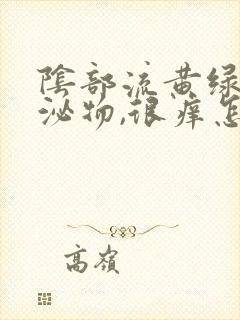 陰部流黄绿
泌物,很痒怎
高嶺